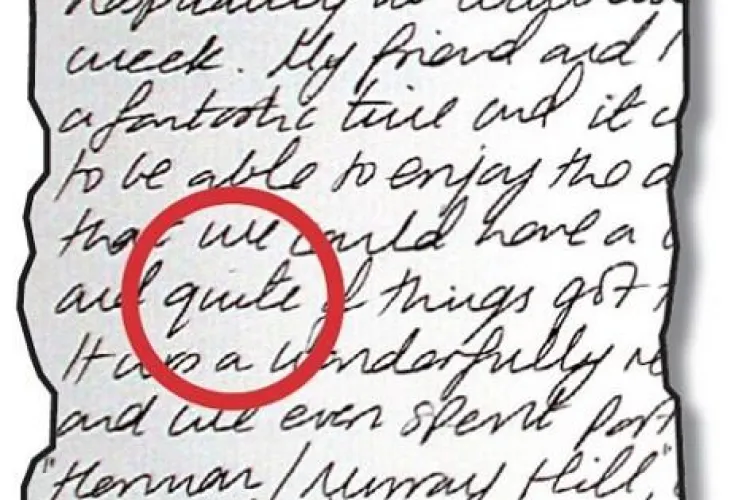 week. My friend and I
a fantastic time and it
to be able to enjoy the
that we could have a
and quite if things got
It was a wonderfully
and we even spent part
"Herman / Murray Hill,"